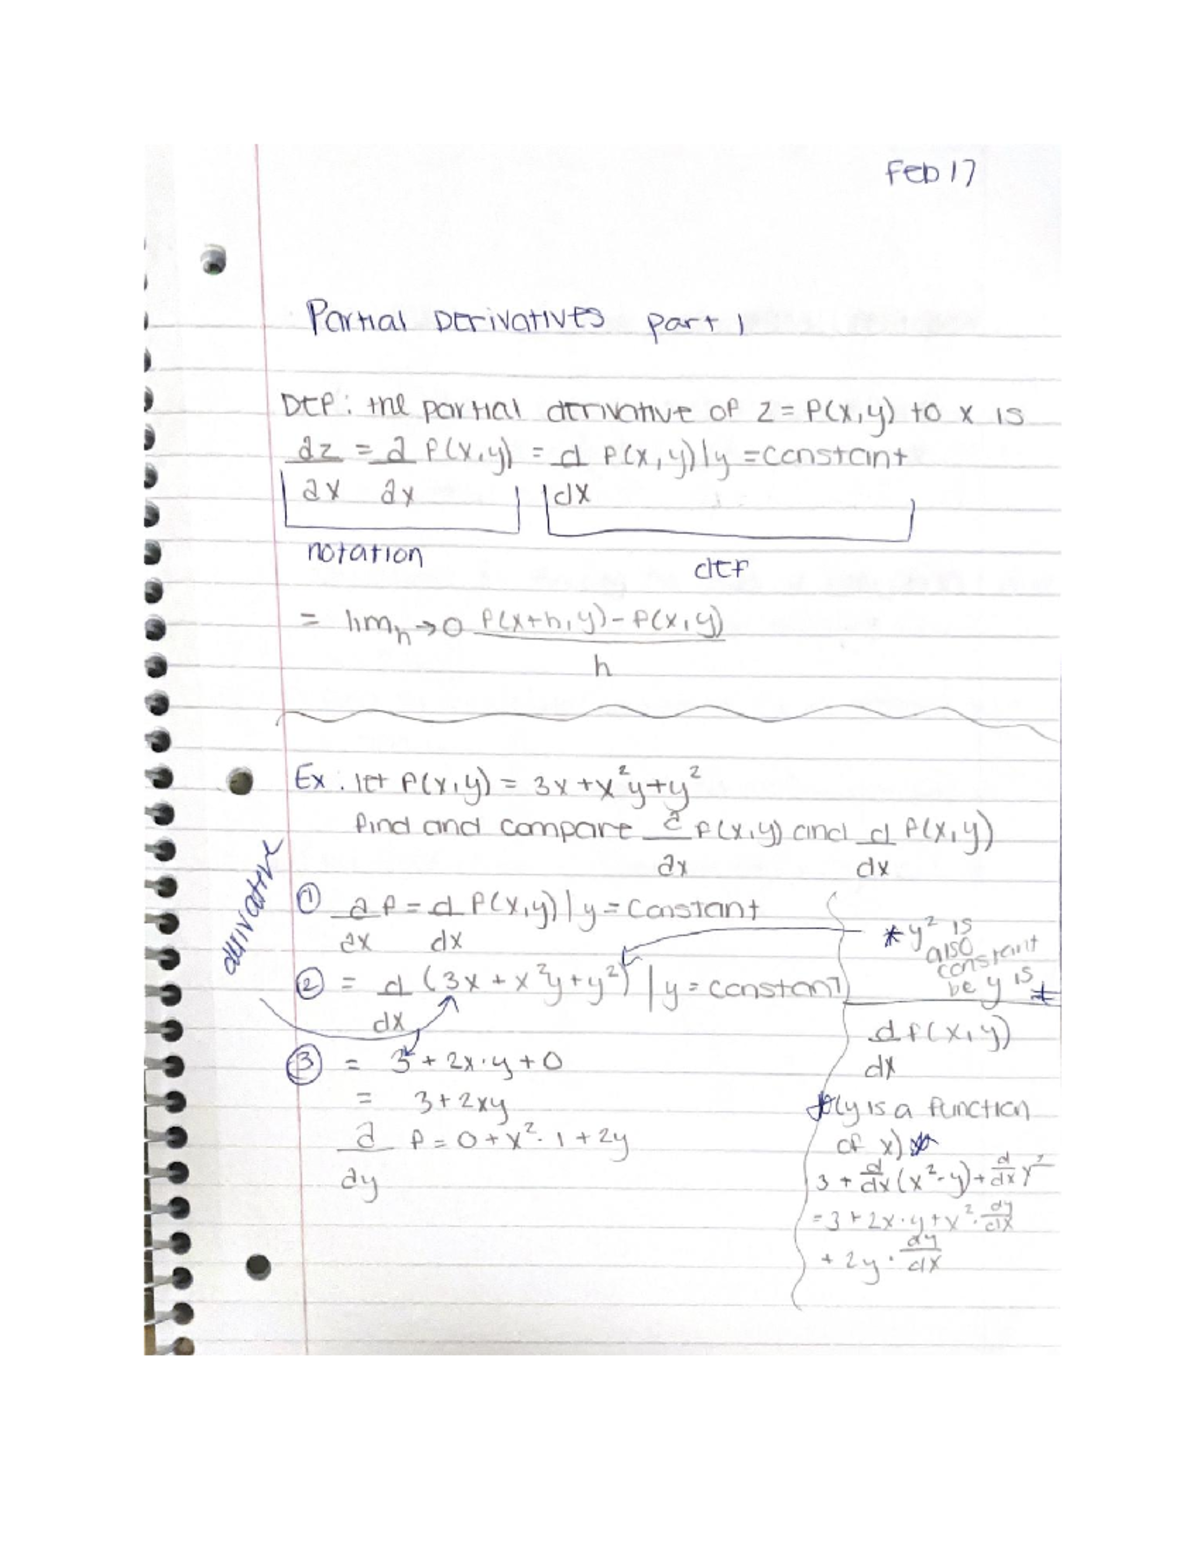 Feb 17
Partial Derivatives part 1
Def: the partial derivative of z = f(x,y) to x is
∂z/∂x = ∂/∂x f(x,y) = d/dx f(x,y)|y = constant
notation
def
= lim h→0 f(x+h,y) - f(x,y) / h
Ex: let f(x,y) = 3x + x²y + y²
find and compare ∂/∂x f(x,y) and d/dx f(x,y)
derivative
① ∂f/∂x = d/dx f(x,y)|y = constant
② = d/dx (3x + x²y + y²)|y = constant
③ = 3 + 2x·y + 0
= 3 + 2xy
∂/∂y f = 0 + x²·1 + 2y
* y² is
also
constant
be y is *
d f(x,y)
dx
(y is a function
of x)
3 + d/dx (x²·y) + d/dx y²
= 3 + 2x·y + x²·dy/dx
+ 2y · dy/dx